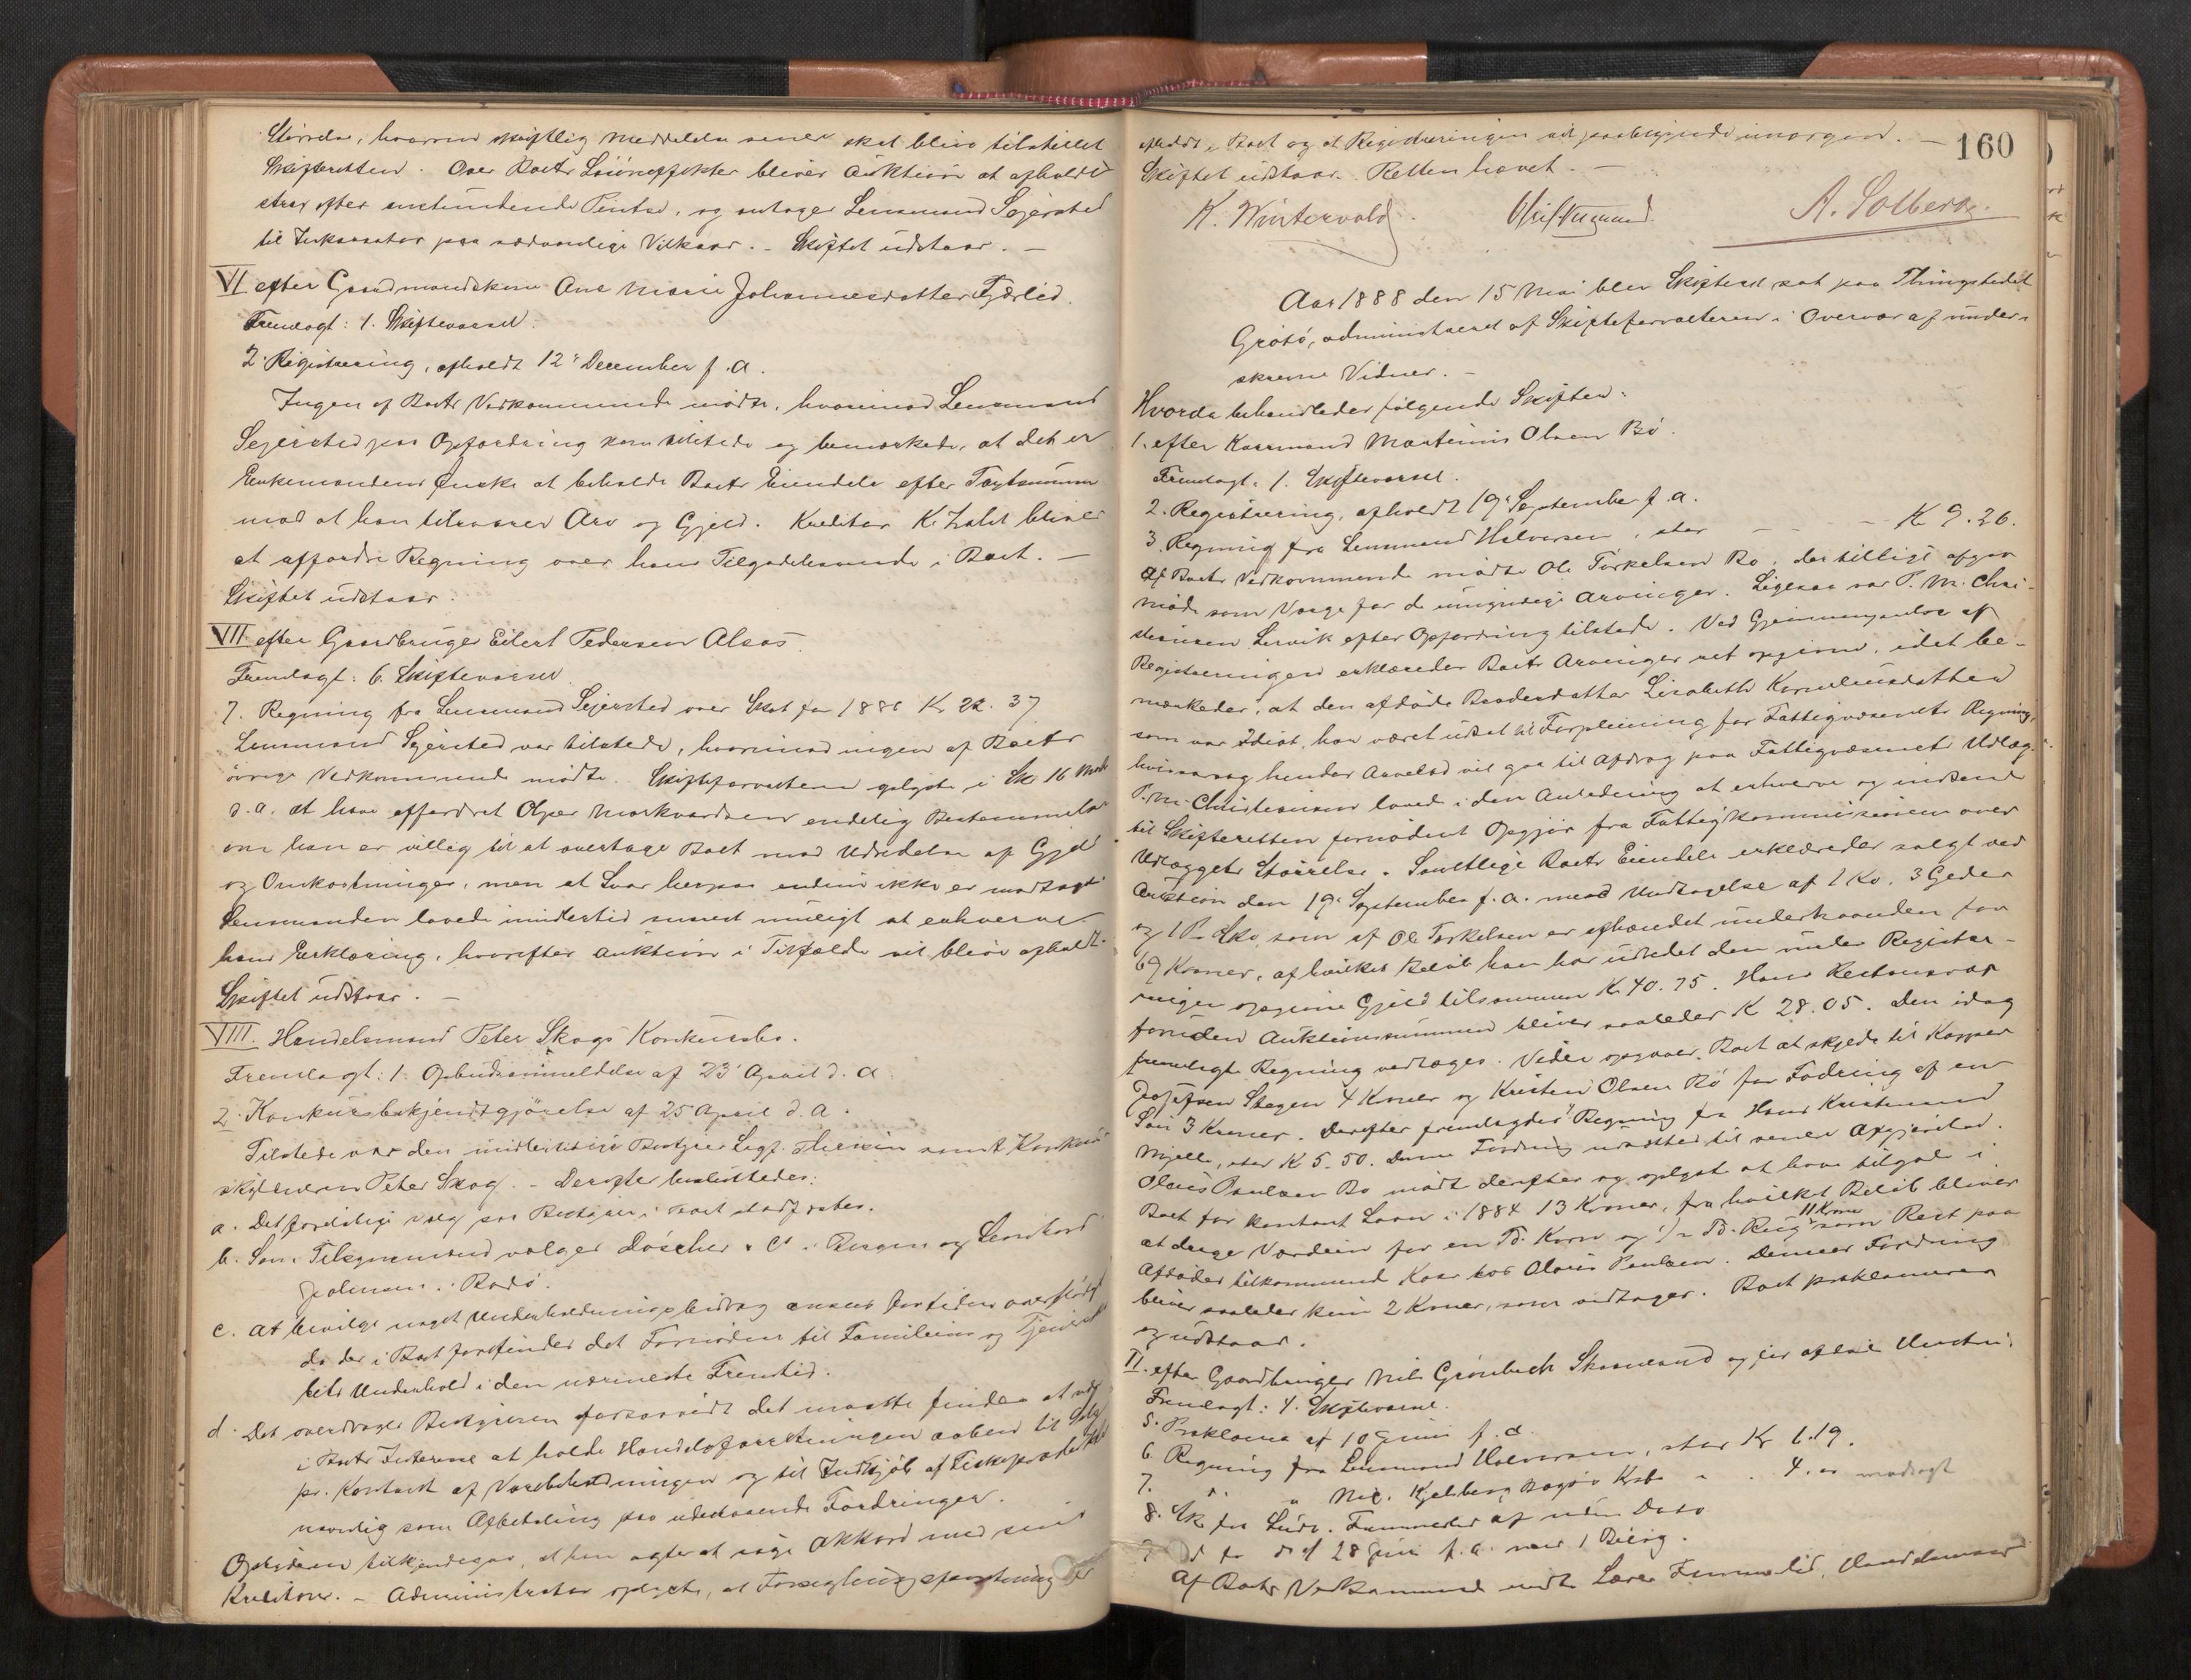 Størrelse, hvorom skriftlig Meddelelse senere skal blive tilstillet
Skifteretten. Over Boets Løsøreeffekter bliver Auktion at afholde
strax efter anstundende Pintse, og antages Lensmand Sejersted
til Inkassator paa sædvanlige Vilkaar. - Skiftet udstaar. -
VI efter Gaardmandskone Ane Marie Johannesdatter Fjærlid.
Fremlagt: 1. Skiftevarsel.
2. Registrering, afholdt 12te December f. A.
Ingen af Boets Vedkommende mødte, hvorimod Lensmand
Sejersted paa Opfordring kom tilstede og bemærkede, at det er
Enkemandens Ønske at beholde Boets Eiendele efter Taxtsummen
mod at han tilsvarer Arv og Gjeld. Kreditor K. Zahl bliver
at affordre Regning over hans Tilgodehavende i Boet. -
Skiftet udstaar.
VII efter Gaardbruger Eilert Pedersen Alsos.
Fremlagt: 6. Skiftevarsel
7. Regning fra Lensmand Sejersted over Skat for 1886 Kr 22. 37
Lensmand Sejersted var tilstede, hvorimod ingen af Boets
øvrige Vedkommende mødte. Skifteforvalteren oplyste i Sk 16 Marts
d. A. at have affordret Olper Markvardsen endelig Bestemmelse
om han er villig til at overtage Boet mod Udredelse af Gjeld
og Omkostninger, men at Svar herpaa endnu ikke er modtaget.
Lensmanden lovede imidlertid snarest muligt at erhverve
hans Erklæring, hvorefter Auktion i Tilfælde vil blive afholdt.
Skiftet udstaar. -
VIII. Handelsmand Peter Skogs Konkursbo.
Fremlagt: 1. Opbudsanmeldelse af 23 April d. A.
2. Konkursbekjendtgjørelse af 25 April d. A.
Tilstede var den midlertidige Bestyrer samt Konkurs
skyldneren Peter Skog. - Derefter besluttedes:
a. Det foreløbige Valg paa Bestyrer i Boet stadfæstes.
b. Som Tilsynsmænd vælges Döscher & Co i Bergen og
Johnsen i Bodø.
c. At bevilge noget Underholdningsbidrag ansees for tiden overflødigt
da der i Boet forefindes det Fornødne til Familiens og
Underhold i den nærmeste Fremtid.
d. Det overdrages Bestyreren forsaavidt det maatte findes at være
i Boets Interesse at holde Handelsforretningen aaben til Salg
pr. Kontant af Varebeholdningen og til Indkjøb af Fiskeprodukter
navnlig som Afbetaling paa udestaaende Fordringer.
Opbyderen tilkjendegav, at han agter at søge Akkord med sine
Kreditorer. - Administrator oplyste, at Forseglingsforretning er
160
afholdt i Boet og at Registreringen vil paabegyndes imorgen. -
Skiftet udstaar. Retten hævet. -
K. Wintervold A. Solberg.
Aar 1888 den 15 Mai blev Skifteret sat paa Thingstedet
Grøtø, administreret af Skifteforvalteren i Overvær af under-
skrevne Vidner. -
Hvorda behandledes følgende Skifter:
1. efter Kaarmand Martinus Olsen Bø.
Fremlagt: 1. Skiftevarsel.
2. Registrering, afholdt 19de September f. A.
3. Regning fra Lensmand Halvorsen, stor - - - K 9. 26.
Af Boets Vedkommende mødte Ole Torkelsen Bø, der tillige afgav
Møde som Værge for de umyndige Arvinger. Ligesaa var P. M. Chri-
stensen Lervik efter Opfordring tilstede. Ved Gjennemgaaelse af
Registreringen erklæredes Boets Arvinger ret opgivne, idet be-
mærkedes, at den afdøde Broderdatter Lisabeth Korneliusdatter
som var Idiot, har været udsat til Forpleining for Fattigvæsenets Regning,
hvisaarsag hendes Arvelod vil gaa til Afdrag paa Fattigvæsenets Udlæg.
P. M. Christensen lovede i den Anledning at erhverve og indsende
til Skifteretten fornødent Opgjør fra Fattigkommissionen over
Udlægets Størrelse. Samtlige Boets Eiendele erklæredes solgt ved
Auktion den 19de September f. A. med Undtagelse af 1 Ko, 3 Geder
og 1 P. Sko, som af Ole Torkelsen er afhændet underhaanden for
69 Kroner, af hvilket Beløb han har udredet den under Registre-
ringen opgivne Gjeld tilsammen K 40. 75. Hans Restansvar
foruden Auktionssummen bliver saaledes K 28. 05. Den idag
fremlagte Regning vedtages. Videre opgaves Boet at skylde til Kasper
Josefsen Skagen 4 Kroner og Kristen Olsen Bø for Fodring af en
Sau 3 Kroner. Derefter fremlagdes Regning fra Hans Kristensen
Mjelle, stor K 5. 50. Denne Fordring udsattes til senere Afgjørelse.
Olaus Paulsen Bø mødte derefter og oplyste at have tilgode i
Boet for kontant Laan i 1884 13 Kroner, fra hvilket Beløb bliver
at drage Værdien for en Td. Korn og 1/2 Td. Rug 11 Kroner som Rest paa
Afdødes tilkommende Kaar hos Olaus Paulsen. Dennes Fordring
bliver saaledes kun 2 Kroner, som vedtages. Boet proklameres
og udstaar.
II. efter Gaardbruger Nils Grønbech Skaanland og før afdøde Hustru.
Fremlagt: 4. Skiftevarsel.
5. Proklama af 10 Juni f. A.
6. Regning fra Lensmand Halvorsen, stor Kr 6.19.
7. " " Nic. Kjelsberg - . 4. modtagt
8. Sk fra Lærer af uden Dato
9. d fra d af 28 Juni f. A. med 1 Bilag.
Af Boets Vedkommende mødte Lærer Handelsmand